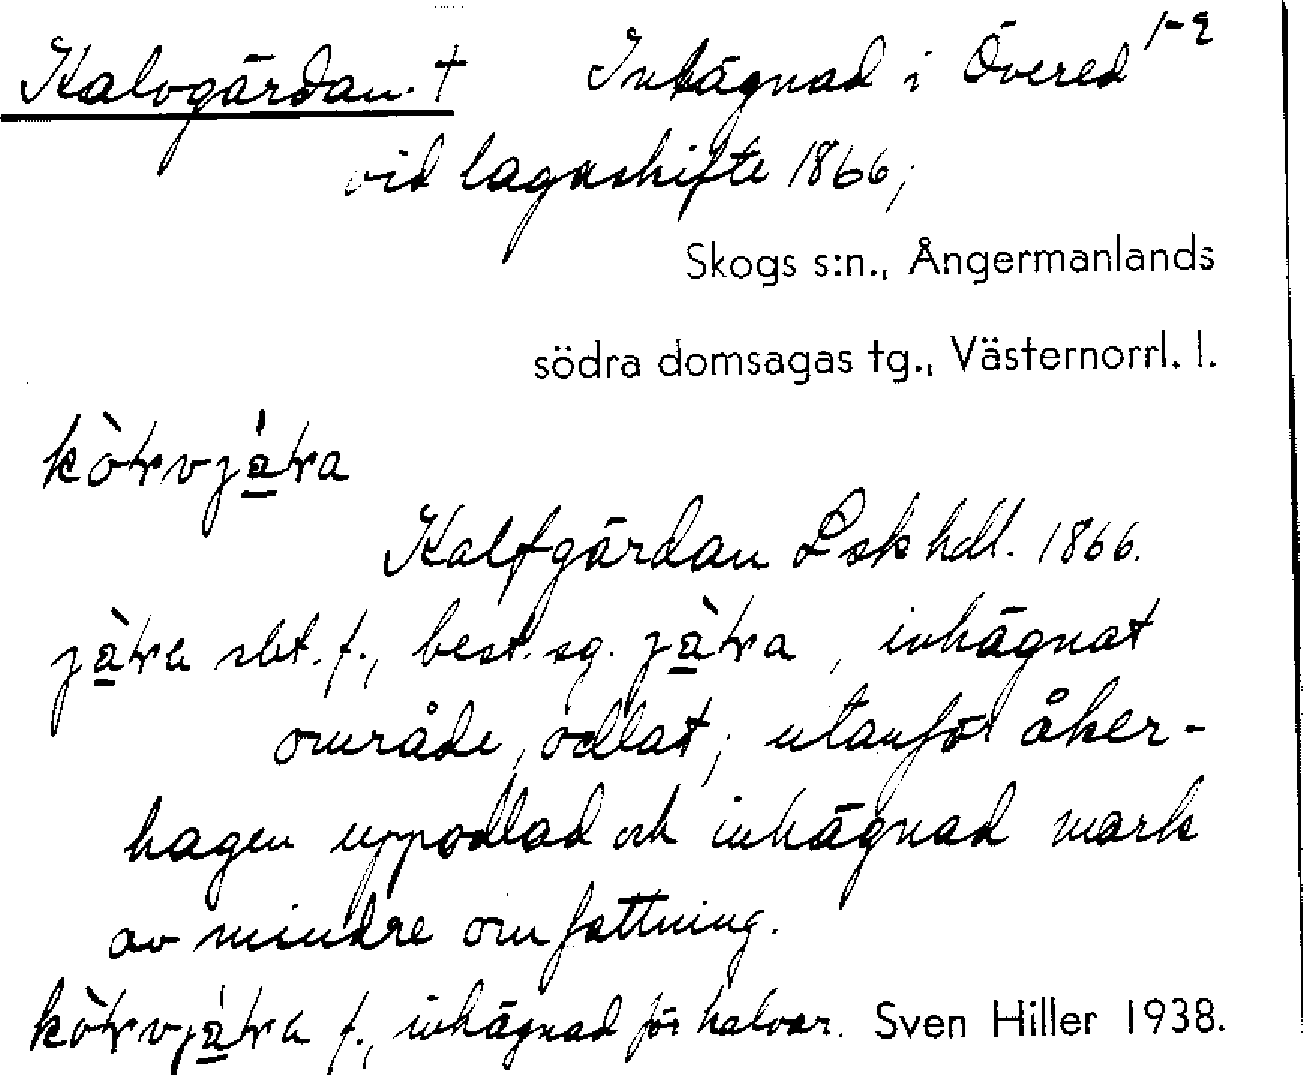 Kalvgärdan. † Inhägnad i Övered 1-2
vid lagaskifte 1866;
Skogs s:n., Ångermanlands
södra domsagas tg., Västernorrl. l.
Kalfgärdan Lsk hdl. 1866.
sbt. f., best. sg. , inhägnat
område, odlat; utanför åker-
hagen uppodlad och inhägnad mark
av mindre omfattning.
f., inhägnad för kalvar. Sven Hiller 1938.